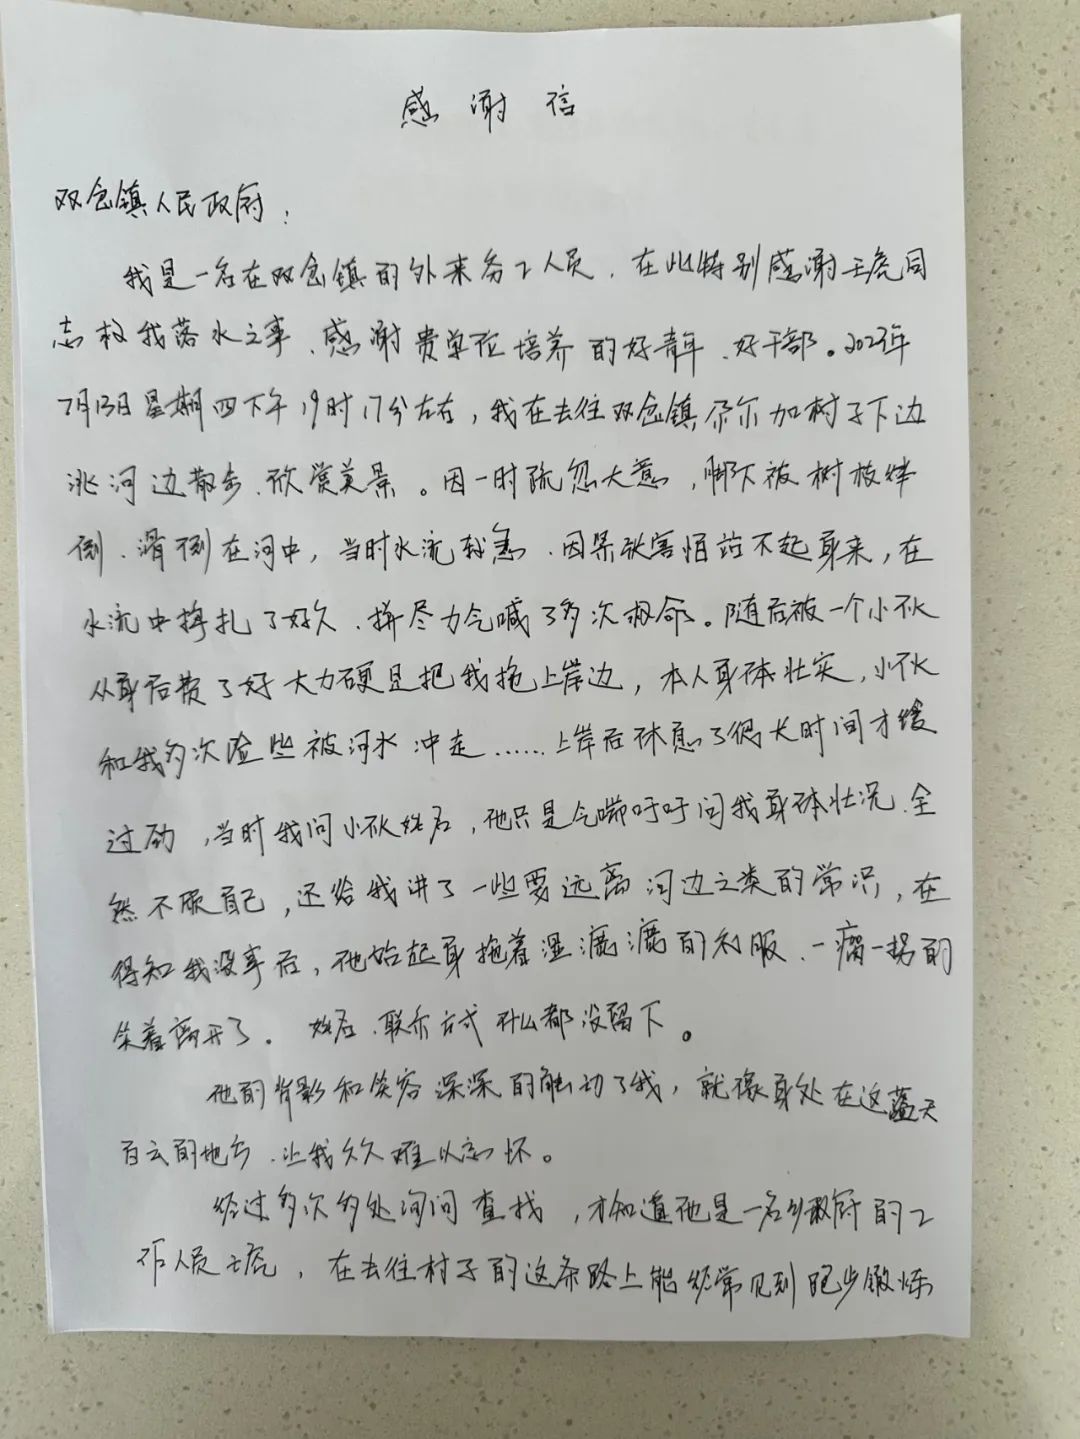 感谢信
双仓镇人民政府：
我是一名在双仓镇的外来务工人员，在此特别感谢王虎同
志救我落水之事、感谢贵单位培养的好青年、好干部。2023年
7月13日星期四下午19时17分左右，我在去往双仓镇尕尔加村子下边
洮河边散步、欣赏美景。因一时疏忽大意，脚下被树枝绊
倒、滑倒在河中，当时水流较急、因紧张害怕站不起身来，在
水流中挣扎了好久、拼尽力气喊了多次救命。随后被一个小伙
从身后费了好大力硬是把我拖上岸边，本人身体壮实，小伙
和我多次险些被河水冲走……上岸后休息了很长时间才缓
过劲，当时我问小伙姓名，他只是气喘吁吁问我身体状况、全
然不顾自己，还给我讲了一些要远离河边之类的常识，在
得知我没事后，他始起身拖着湿漉漉的衣服、一瘸一拐的
笑着离开了。姓名、联系方式什么都没留下。
他的背影和笑容深深的触动了我，就像身处在这蓝天
白云的地方、让我久久难以忘怀。
经过多次多处询问查找，才知道他是一名乡政府的工
作人员王虎，在去往村子的这条路上能经常见到跑步锻炼